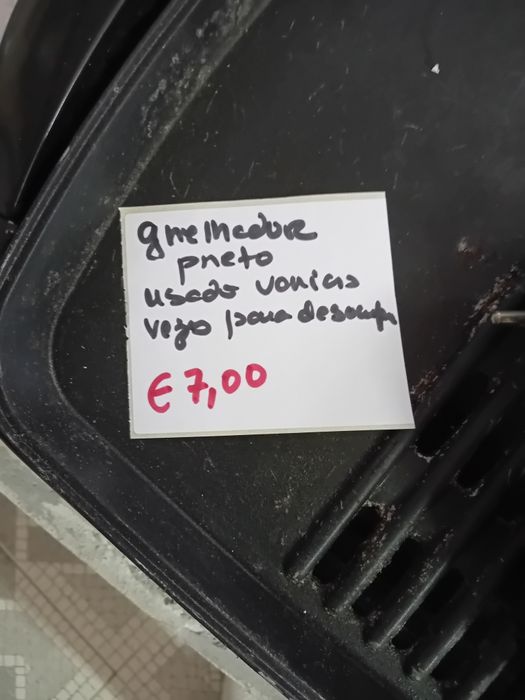 grelhador
preto
usado varias
vezes para
€7,00